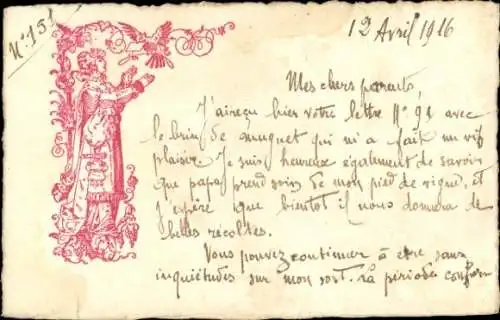 N° 151
12 Avril 1916
Mes chers parents,
J'ai reçu hier votre lettre N° 91 avec
le brin de muguet qui m'a fait un vif
plaisir. Je suis heureux également de savoir
que papa prend soin de mon pied de vigne, et
j'espère que bientôt il nous donnera de
belles récoltes.
Vous pouvez continuer à être sans
inquiétudes sur mon sort. La période